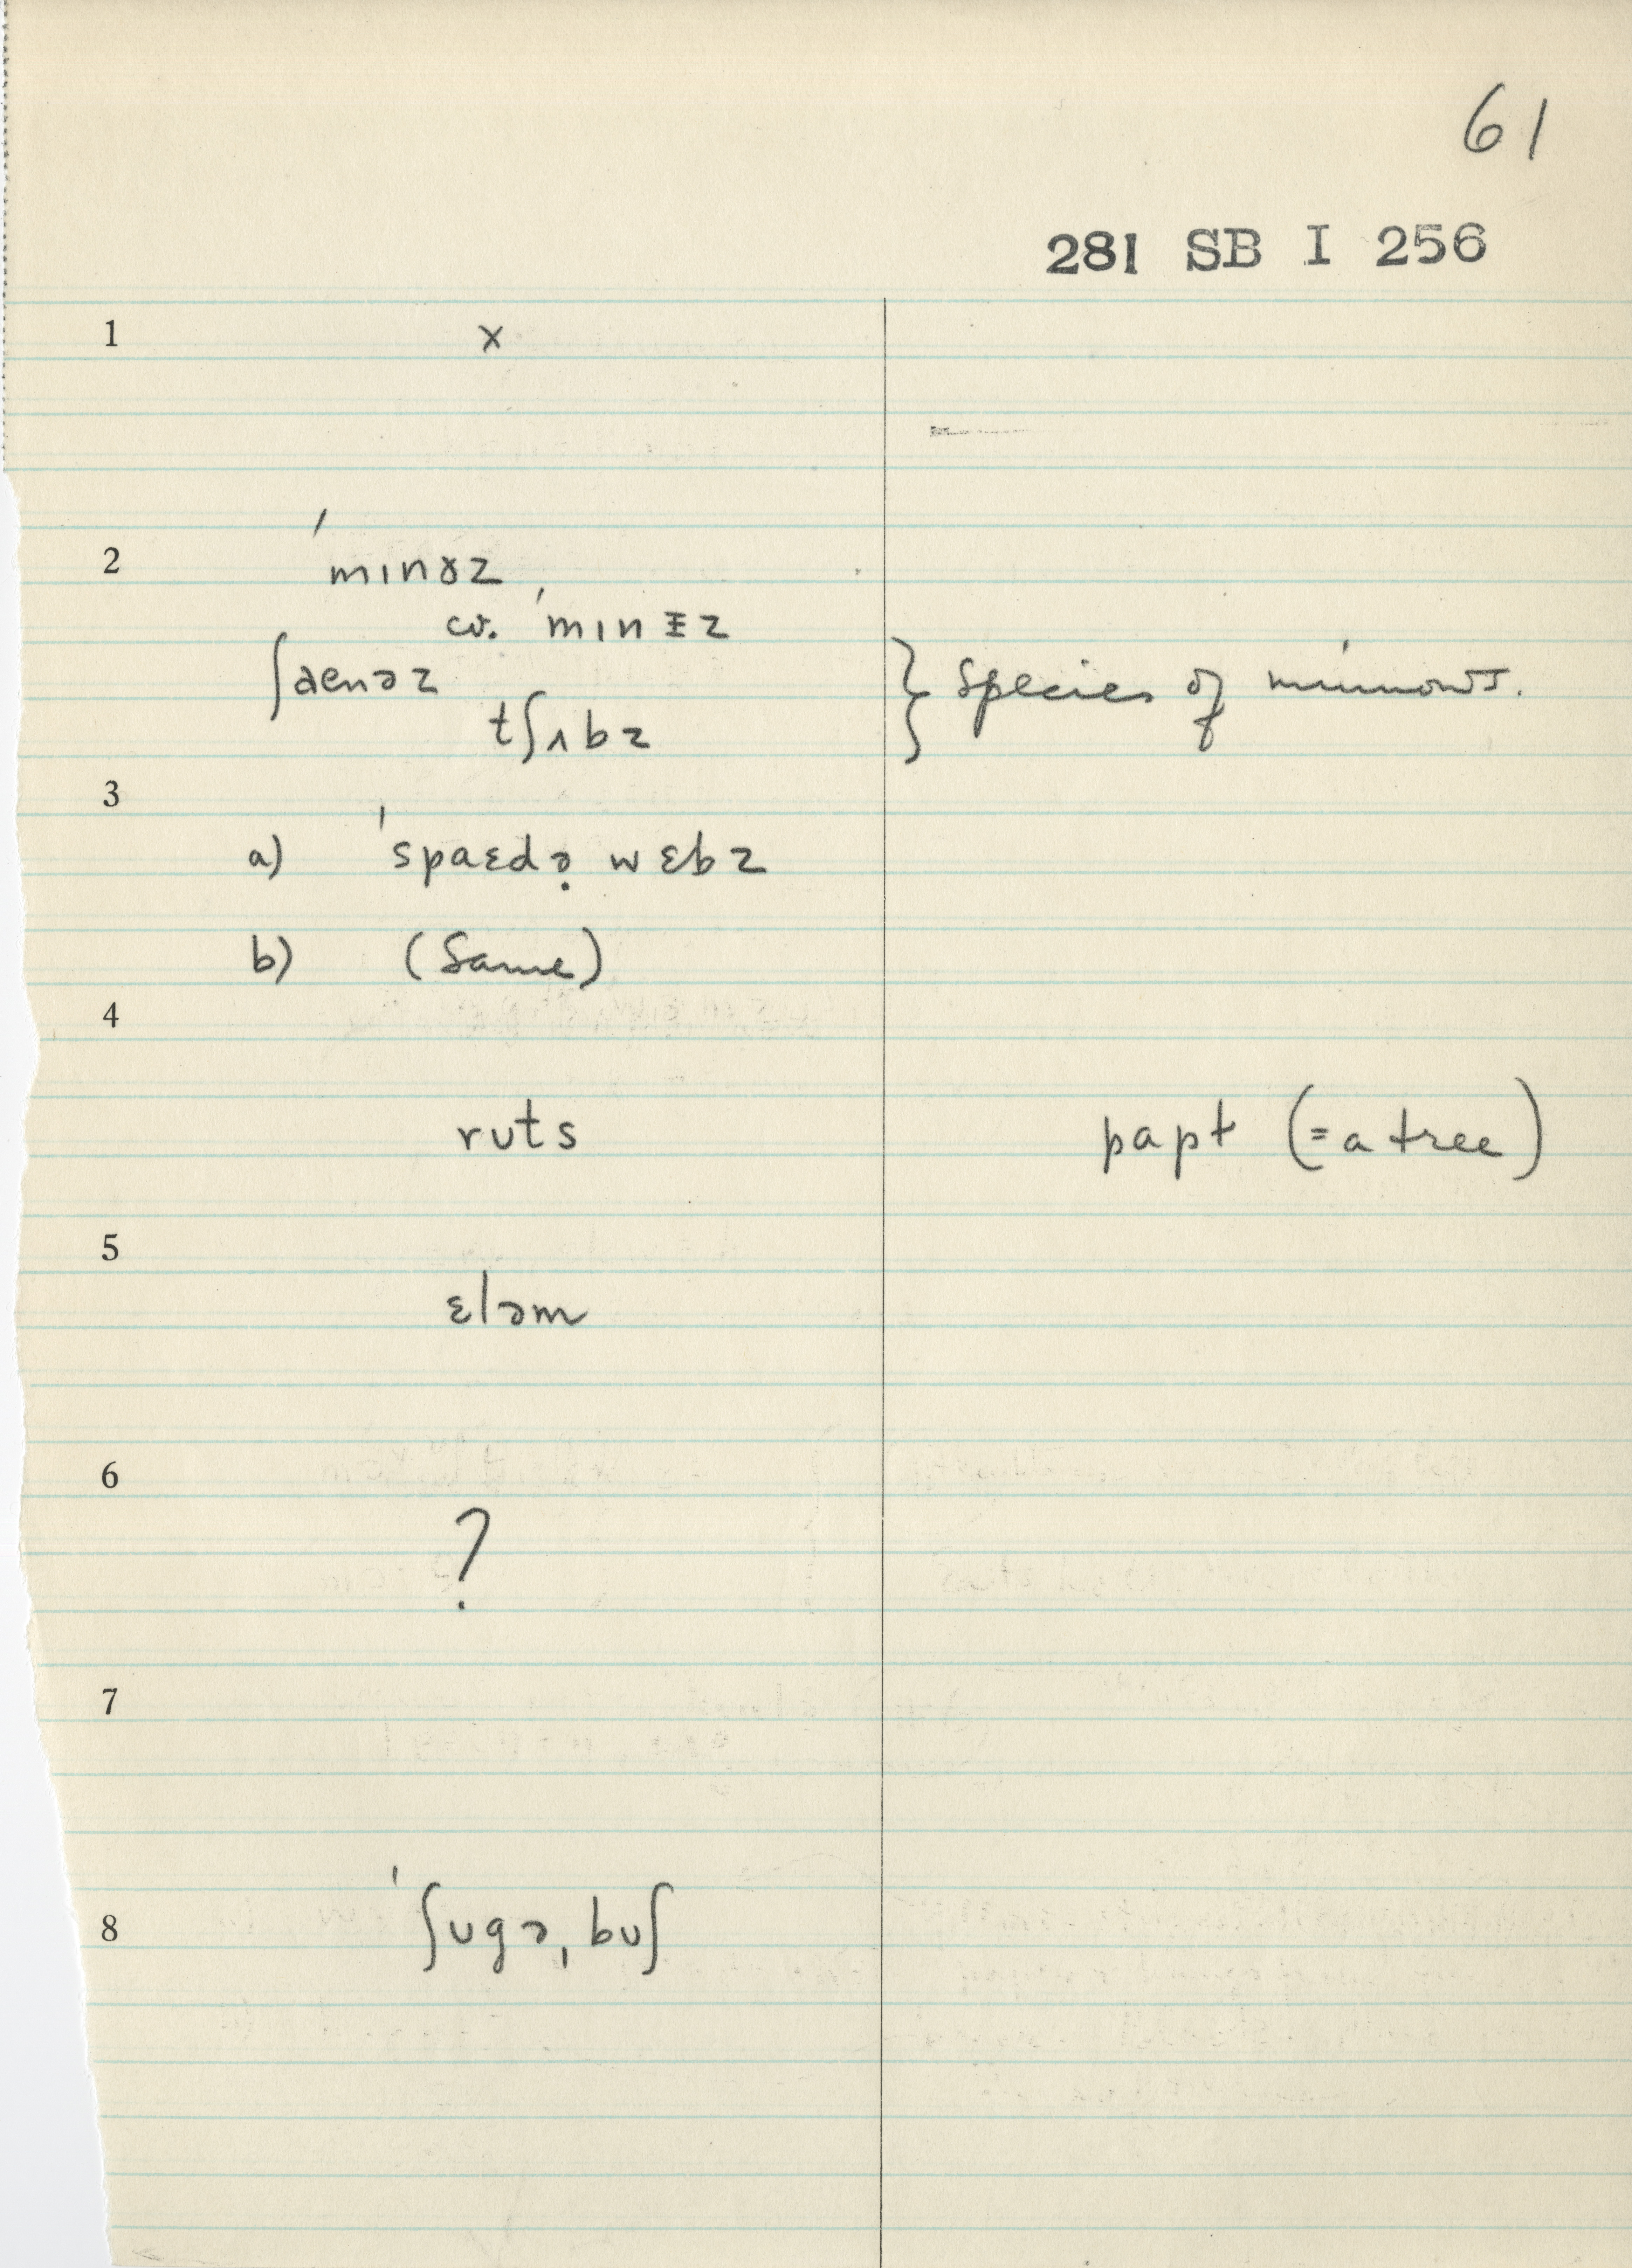 61
281 SB I 256
1 x
2 ˈmɪnɤz
cv. ˈmɪnɪ̵z
ʃaenəz } Species of minnows.
tʃʌbz
3
a) ˈspaɛdə̣ wɛbz
b) (Same)
4
rᴜts papt (= a tree)
5
ɛləm
6
?
7
8 ˈʃᴜgəˌbᴜʃ